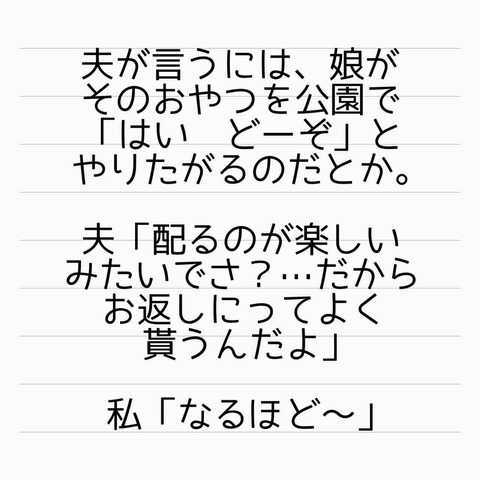 夫が言うには、娘が
そのおやつを公園で
「はい　どーぞ」と
やりたがるのだとか。
夫「配るのが楽しい
みたいでさ？…だから
お返しにってよく
貰うんだよ」
私「なるほど〜」